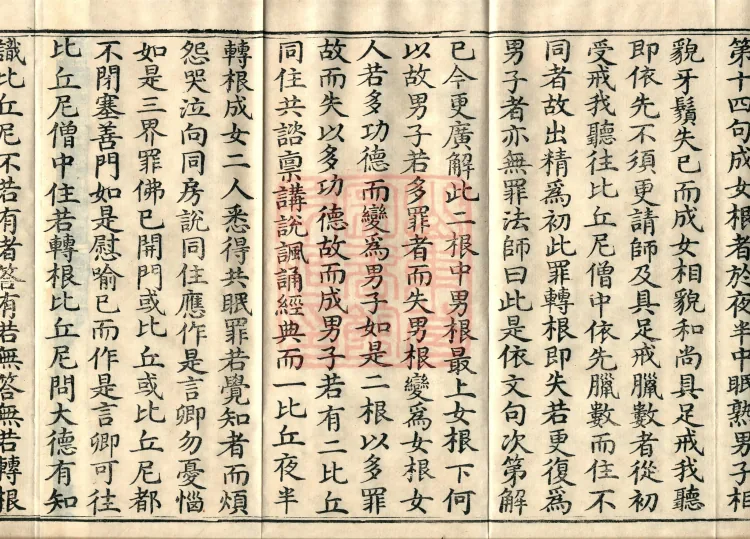 第十四句成女根者於夜半中眠熟男子相
貌牙鬚失已而成女相貌和尚具足戒我聽
即依先不須更請師及具足戒臘數者從初
受戒我聽往比丘尼僧中依先臘數而住不
同者故出精為初此罪轉根即失若更復為
男子者亦無罪法師曰此是依文句次第解
已今更廣解此二根中男根最上女根下何
以故男子若多罪者而失男根變為女根女
人若多功德而變為男子如是二根以多罪
故而失以多功德故而成男子若有二比丘
同住共諮稟講說諷誦經典而一比丘夜半
轉根成女二人悉得共眠罪若覺知者而煩
怨哭泣向同房說同住應作是言卿勿憂惱
如是三界罪佛已開門或比丘或比丘尼都
不閉塞善門如是慰喻已而作是言卿可往
比丘尼僧中住若轉根比丘尼問大德有知
識比丘尼不若有者答有若無答無若轉根